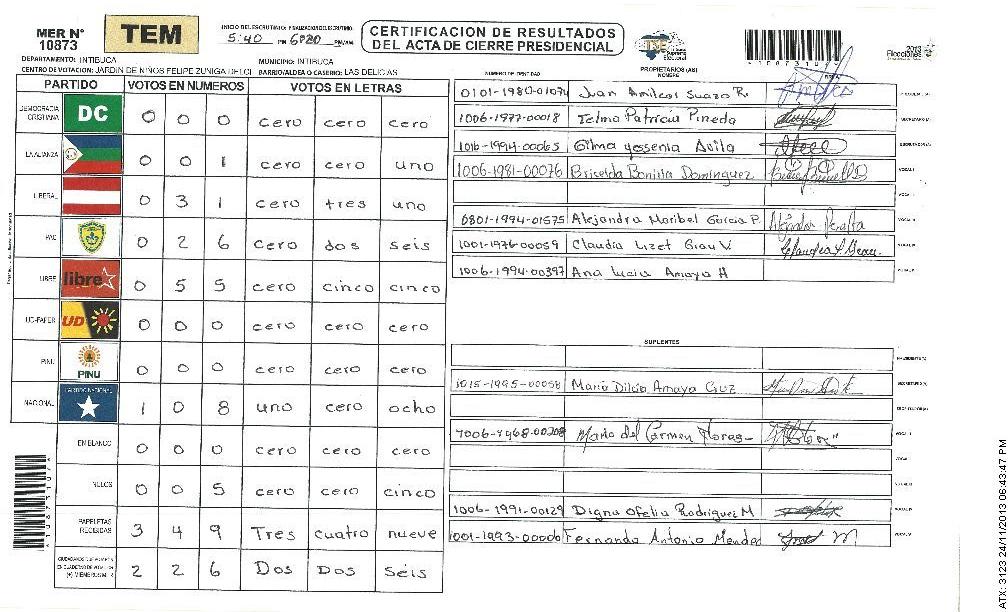 MER N° 10873
TEM
INICIO DEL ESCRUTINIO: FINALIZACION DEL ESCRUTINIO
5:40 PM 6:20 PM/AM
CERTIFICACION DE RESULTADOS
DEL ACTA DE CIERRE PRESIDENCIAL
DEPARTAMENTO: INTIBUCA MUNICIPIO: INTIBUCA
CENTRO DE VOTACION: JARDIN DE NIÑOS FELIPE ZUNIGA DEL CI BARRIO/ALDEA O CASERIO: LAS DELICIAS
PARTIDO VOTOS EN NUMEROS VOTOS EN LETRAS
DEMOCRACIA CRISTIANA DC 0 0 0 cero cero cero
LA ALIANZA 0 0 1 cero cero uno
LIBERAL 0 3 1 cero tres uno
PAC 0 2 6 cero dos seis
LIBRE libre 0 5 5 cero cinco cinco
UD-FAPER UD 0 0 0 cero cero cero
PINU PINU 0 0 0 cero cero cero
NACIONAL PARTIDO NACIONAL 1 0 8 uno cero ocho
EN BLANCO 0 0 0 cero cero cero
NULOS 0 0 5 cero cero cinco
PAPELETAS RECIBIDAS 3 4 9 Tres cuatro nueve
2 2 6 Dos Dos Seis
TSE
2013
Elecciones
NUMERO DE IDENTIDAD PROPIETARIOS (AS) NOMBRE
0101-1980-01094 Juan Amilcar Suazo R.
1006-1977-00018 Telma Patricia Pineda
1016-1994-00065 Gilma Yessenia Avila
1006-1981-00076 Briselda Bonilla Dominguez
0801-1994-01575 Alejandra Maribel Garcia P. Alejandra Peralta
1001-1976-00059 Claudia Lizet Girau V.
1006-1994-00397 Ana Lucia Amaya H
SUPLENTES
1015-1995-00058 Maria Dilcia Amaya Cruz
1006-1968-00208 Maria del Carmen Flores
1006-1991-00129 Digna Ofelia Rodriguez M
1001-1993-00006 Fernando Antonio Mendez
ATX: 3123 24/11/2013 06:43:47 PM